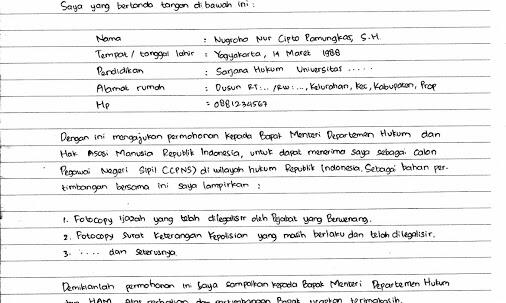 Saya yang bertanda tangan di bawah ini :
Nama : Nugroho Nur Cipto Pamungkas, S.H.
Tempat / tanggal lahir : Yogyakarta, 14 Maret 1988
Pendidikan : Sarjana Hukum Universitas .....
Alamat rumah : Dusun RT:.. /RW:..., Kelurahan, Kec, Kabupaten, Prop
Hp : 0881234567
Dengan ini mengajukan permohonan kepada Bapak Menteri Departemen Hukum dan
Hak Asasi Manusia Republik Indonesia, untuk dapat menerima saya sebagai Calon
Pegawai Negeri Sipil (CPNS) di wilayah hukum Republik Indonesia. Sebagai bahan per-
timbangan bersama ini saya lampirkan :
1. Fotocopy Ijazah yang telah dilegalisir oleh Pejabat yang Berwenang.
2. Fotocopy Surat Keterangan Kepolisian yang masih berlaku dan telah dilegalisir.
3. ..... dan seterusnya.
Demikianlah permohonan ini saya sampaikan kepada Bapak Menteri Departemen Hukum
dan HAM atas perhatian dan pertimbangan Bapak ucapkan terimakasih.